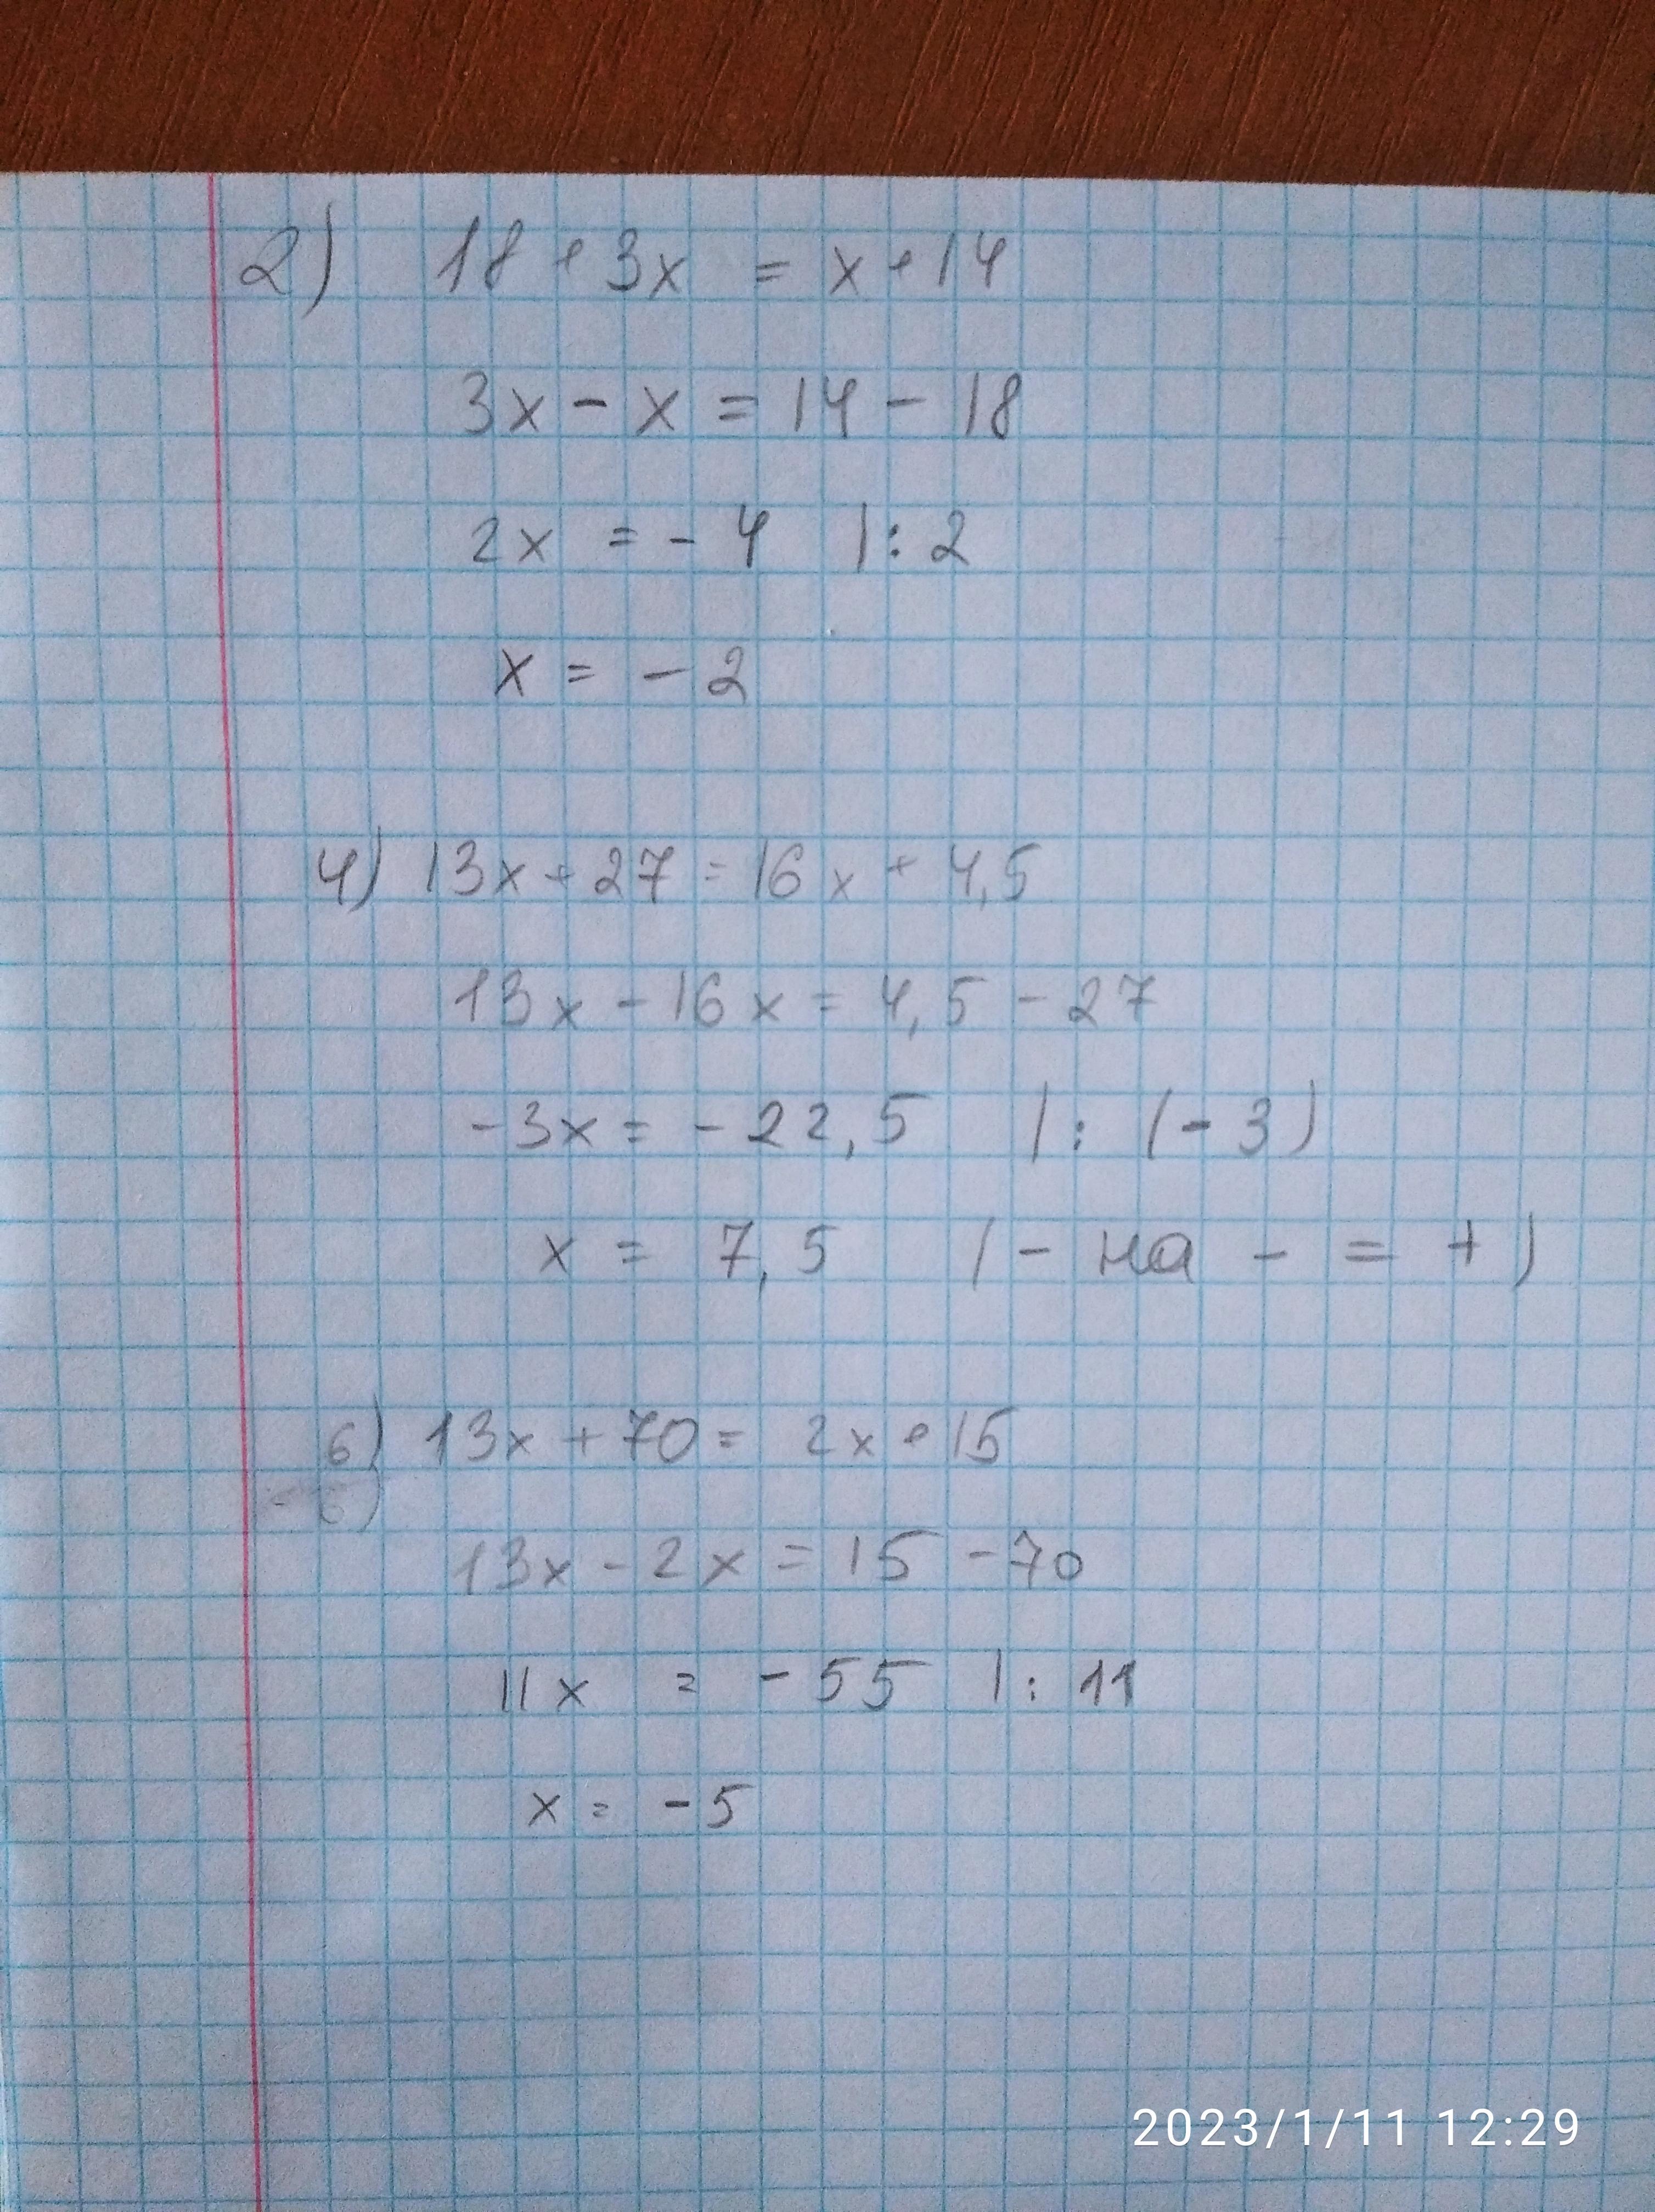 2) 18 + 3x = x + 14
3x - x = 14 - 18
2x = - 4 |: 2
x = - 2
4) 13x + 27 = 16x + 4,5
13x - 16x = 4,5 - 27
-3x = - 22,5 |: (- 3)
x = 7,5 ( - на - = + )
6) 13x + 70 = 2x + 15
13x - 2x = 15 - 70
11x = - 55 |: 11
x = - 5
2023/1/11 12:29